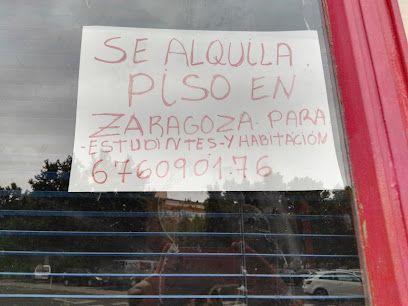 SE ALQUILA
PISO EN
ZARAGOZA PARA
-ESTUDINTES-Y HABITACIÓN
676090176